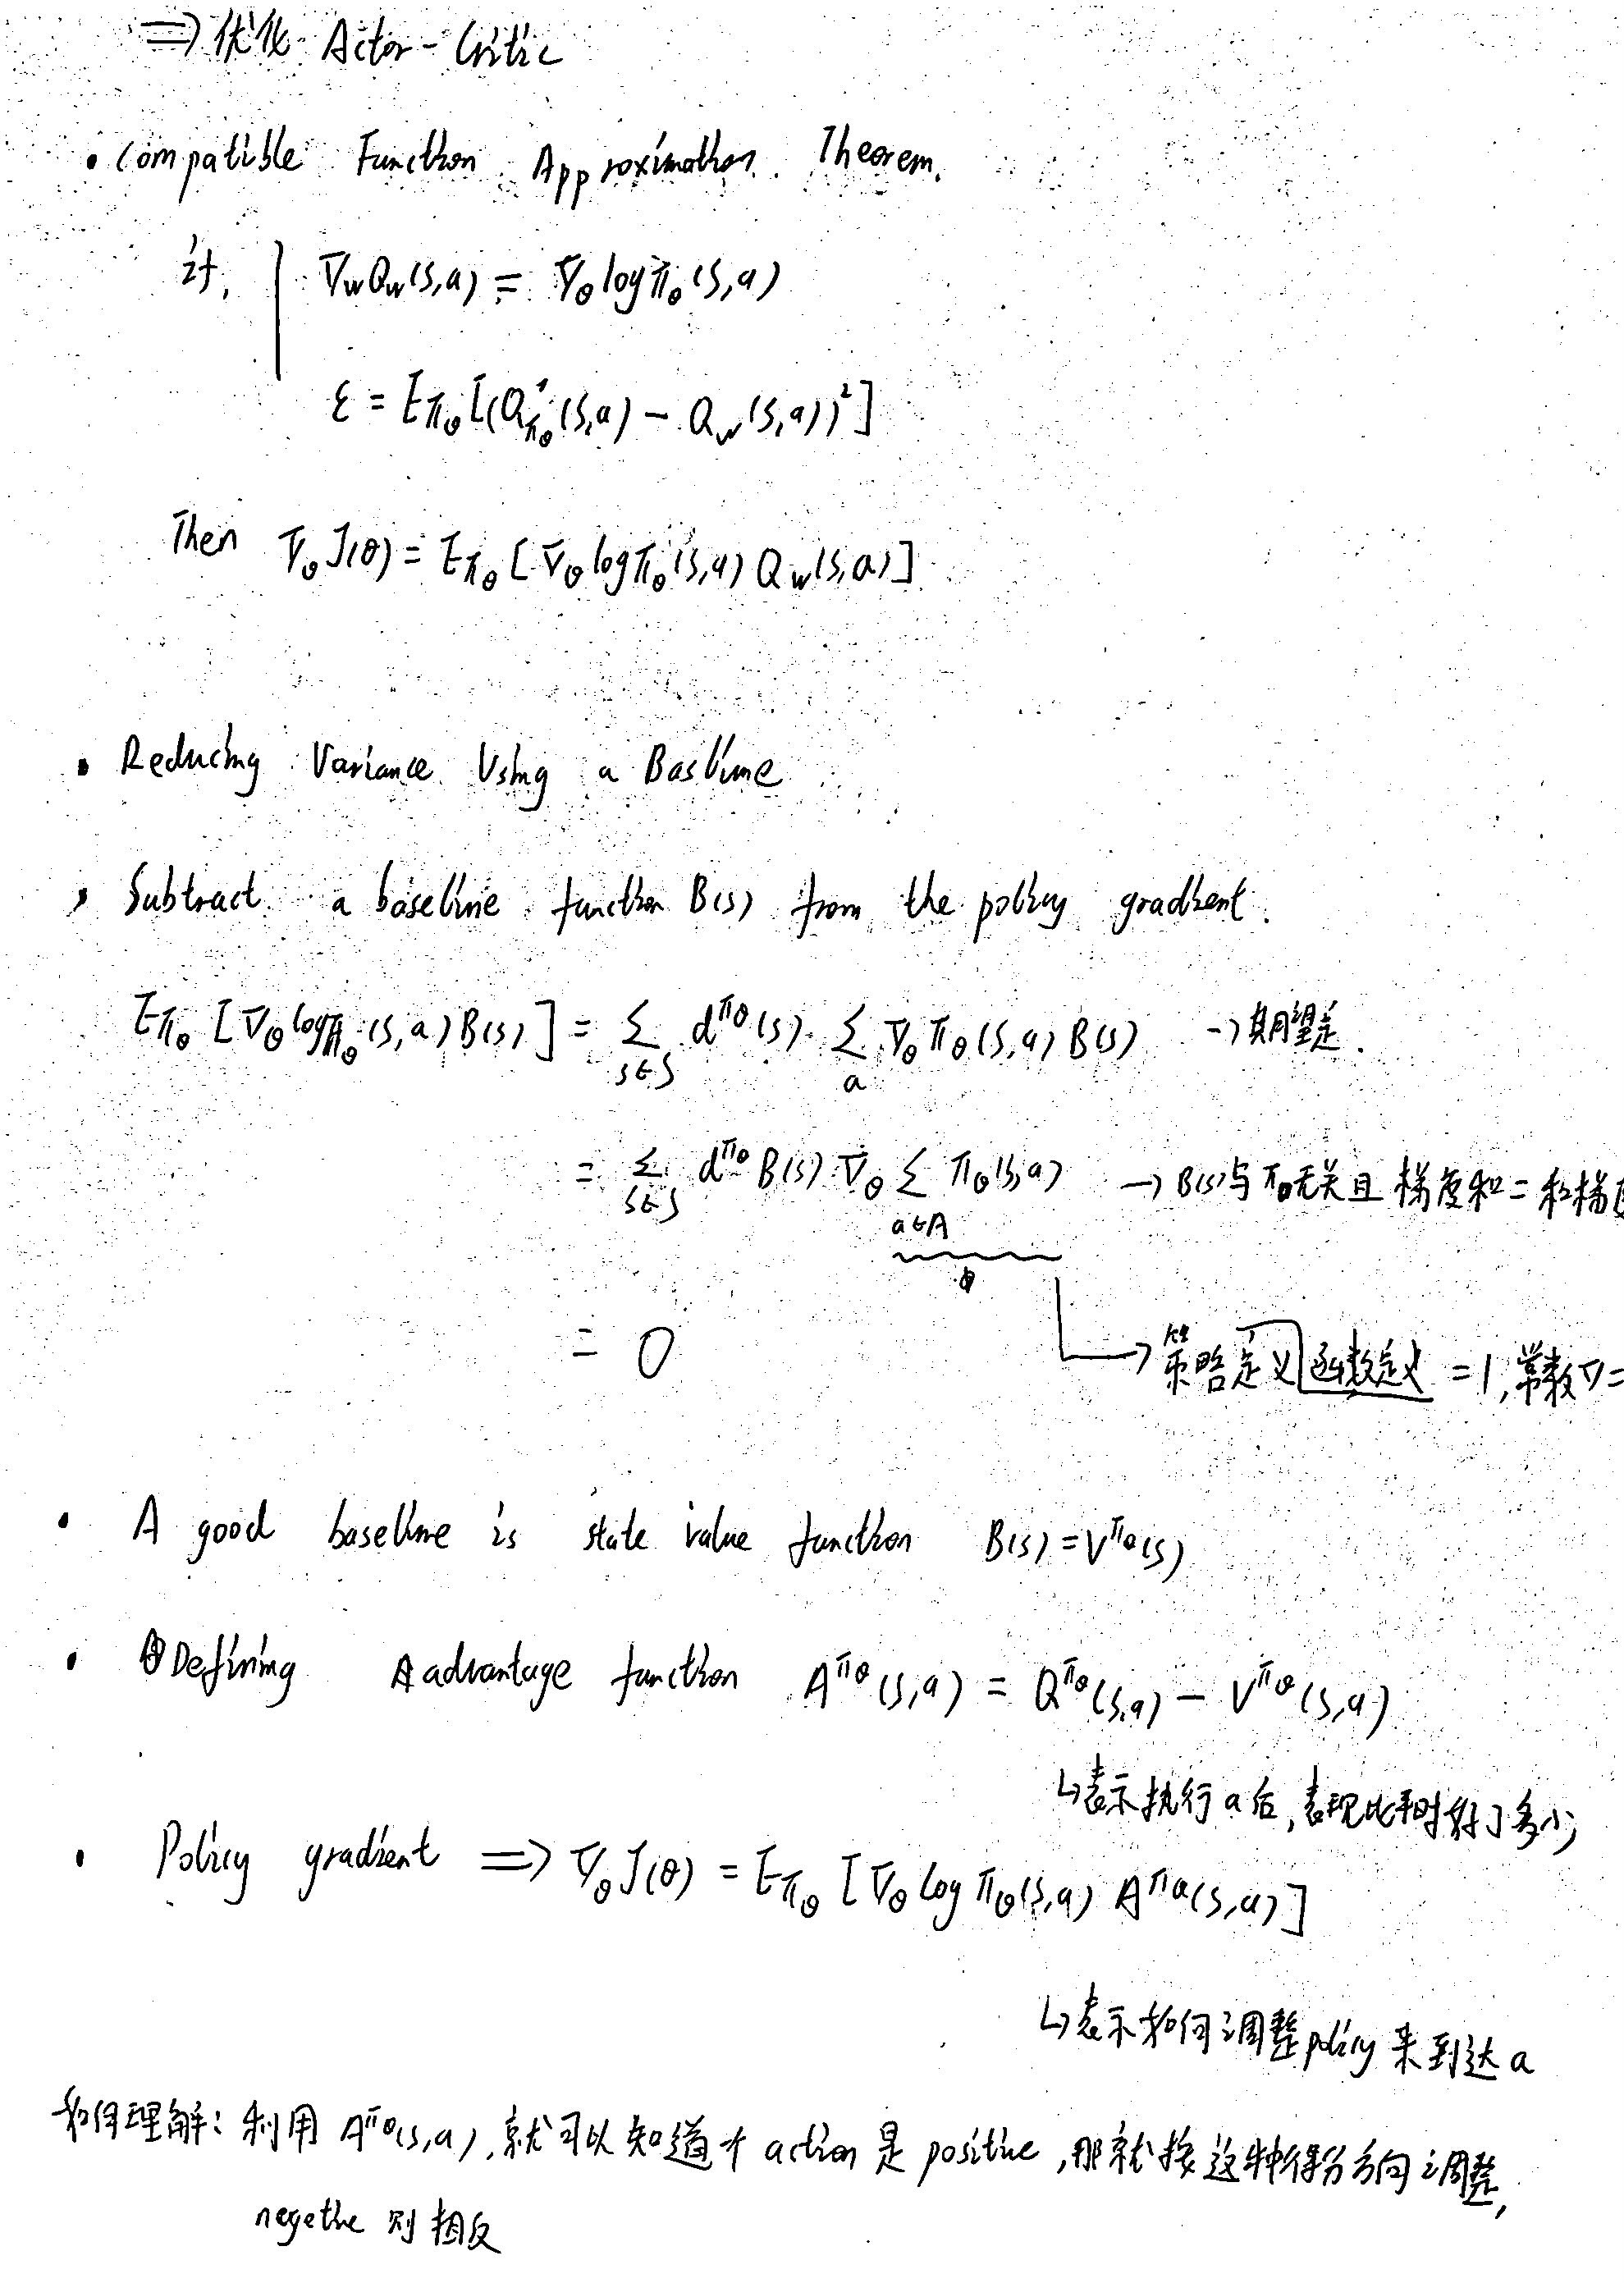 ⇒ 优化 Actor-Critic
• Compatible Function Approximation Theorem.
if, ∇wQw(s,a) = ∇θ logπθ(s,a)
ε = Eπθ[(Qπθ(s,a) - Qw(s,a))²]
Then ∇θJ(θ) = Eπθ[∇θ logπθ(s,a) Qw(s,a)]
• Reducing Variance Using a Basline
• Subtract a baseline function B(s) from the policy gradient.
Eπθ[∇θ logπθ(s,a) B(s)] = Σ s∈S d^πθ(s) Σ a ∇θ πθ(s,a) B(s) → 期望差
= Σ s∈S d^πθ B(s) ∇θ Σ a∈A πθ(s,a) → B(s)与πθ无关且 梯度和=和梯度
= 0 → 策略定义 函数定义 =1, 常数∇=
• A good baseline is state value function B(s)=V^πθ(s)
• Defining Aadvantage function A^πθ(s,a) = Q^πθ(s,a) - V^πθ(s,a)
↳表示执行a后,表现比平时好了多少
• Policy gradient ⇒ ∇θJ(θ) = Eπθ[∇θ log πθ(s,a) A^πθ(s,a)]
↳表示如何调整policy来到达a
如何理解: 利用 A^πθ(s,a), 就可以知道 action 是 positive, 那就按这种得分方向调整,
negetive 则相反